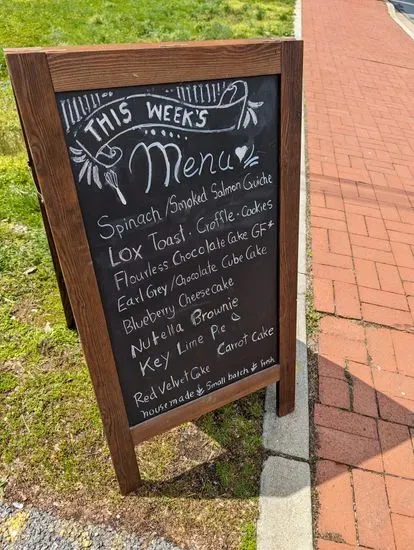 THIS WEEK'S
Menu
Spinach/Smoked Salmon Quiche
Lox Toast · Croffle · Cookies
Flourless Chocolate Cake GF*
Earl Grey/Chocolate Cube Cake
Blueberry Cheesecake
Nutella Brownie
Key Lime Pie
Red Velvet Cake Carrot Cake
house made small batch fresh